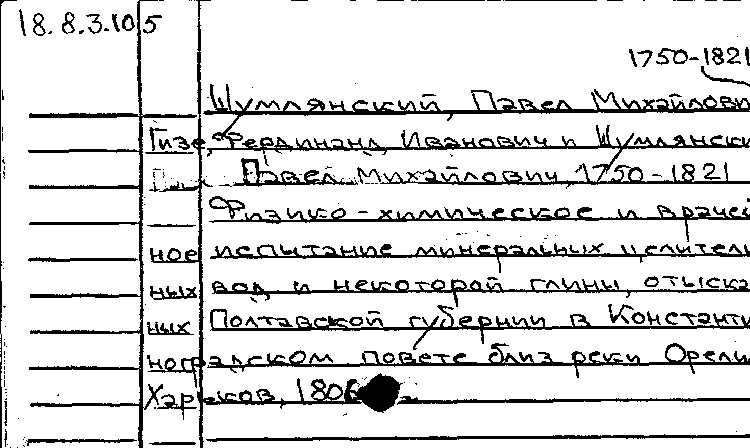 18.8.3.105
1750-1821
Шумлянский, Павел Михайлови
Гизе, Фердинанд Иванович и Шумлянски
Павел Михайлович, 1750-1821
Физико-химическое и врачеб
ное испытание минеральных целитель
ных вод и некоторой глины, отыска
ных Полтавской губернии в Константи
ноградском повете близ реки Орели
Харьков, 1806